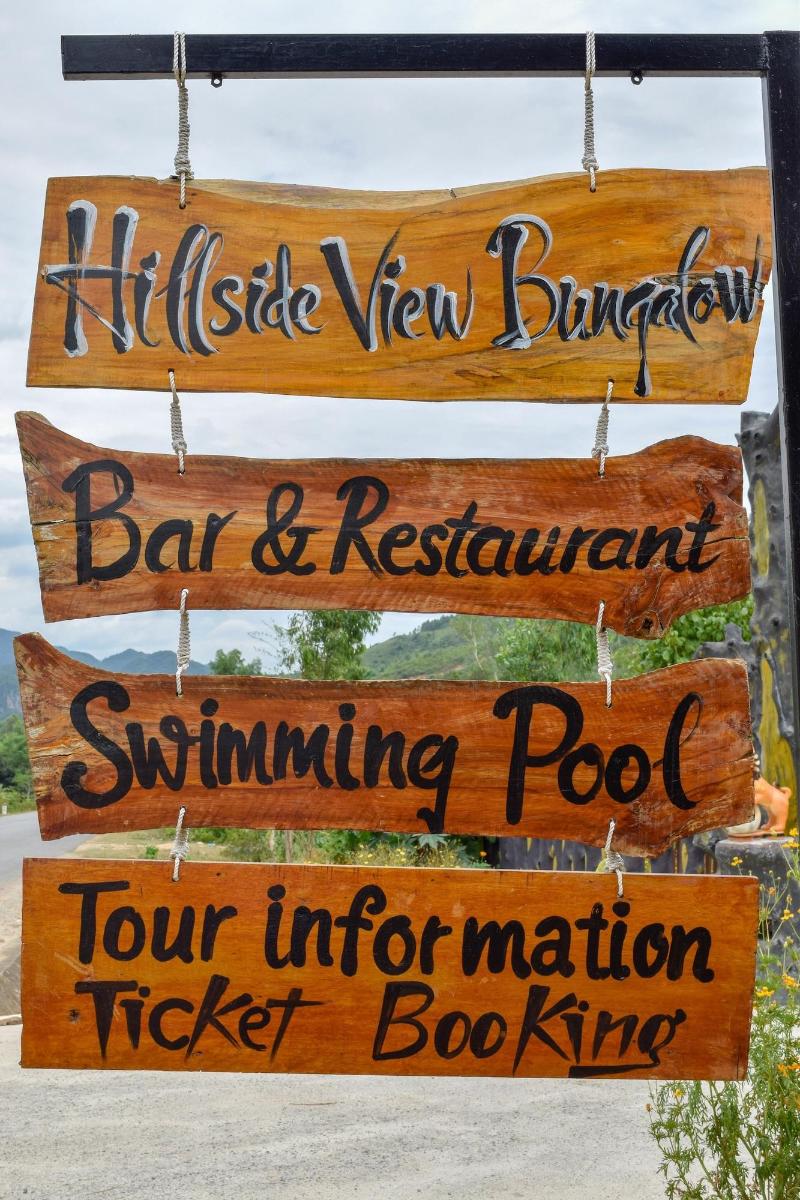 Hillside View Bungalow
Bar & Restaurant
Swimming Pool
Tour information
Ticket Booking